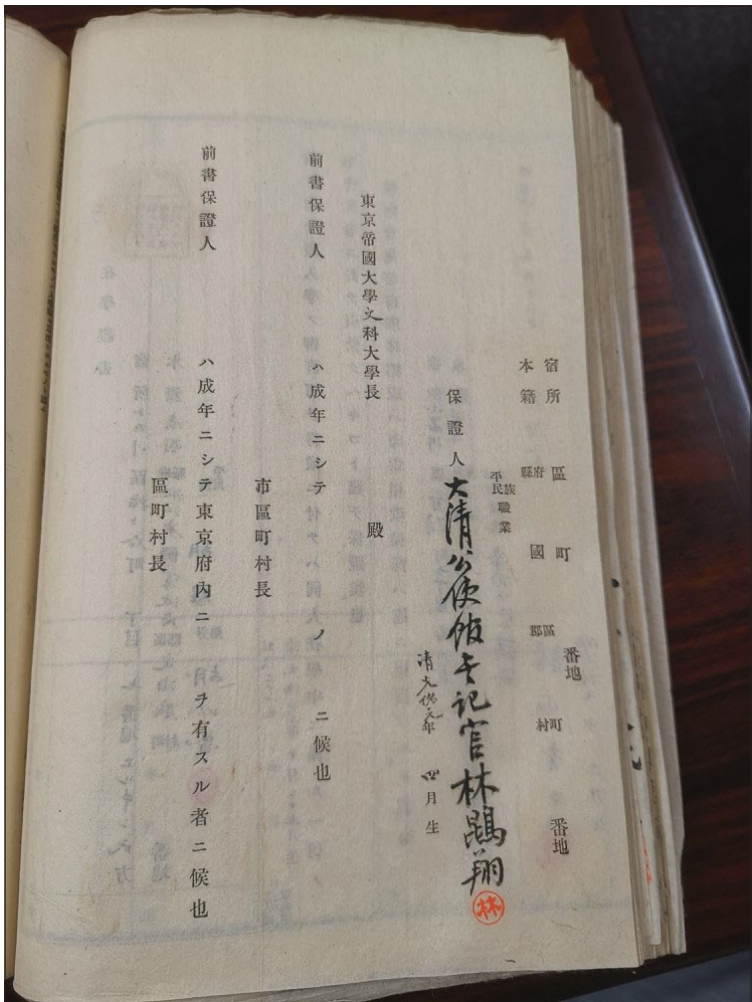 宿所 區 町 番地
本籍 府縣 國 郡區 町村 番地
族平民職業
保證人 大清公使館書記官林鵾翔 林
清 年 四月生
東京帝國大學文科大學長 殿
前書保證人 ハ成年ニシテ ノ ニ候也
市區町村長
前書保證人 ハ成年ニシテ東京府內ニ ヲ有スル者ニ候也
區町村長